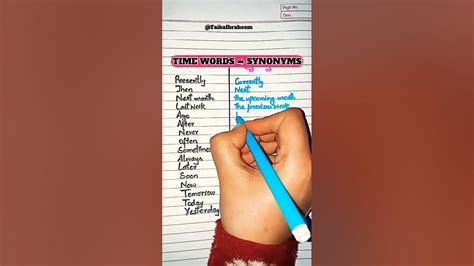 Page No.
Date :
@FaikaIbraheem
TIME WORDS – SYNONYMS
Presently Currently
Then Next
Next month the upcoming month
Last week the previous week
Ago
After
Never
Often
Sometimes
Always
Later
Soon
Now
Tomorrow
Today
Yesterday